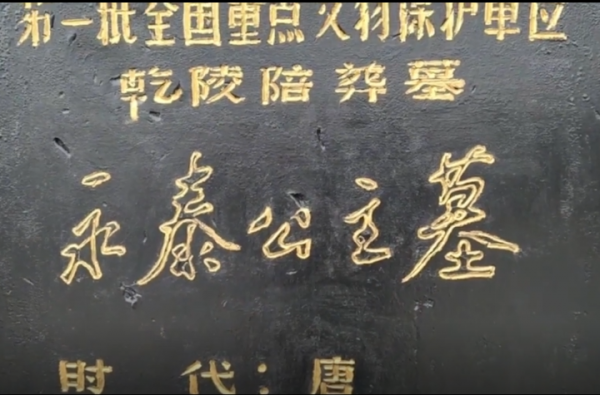 第一批全国重点文物保护单位
乾陵陪葬墓
永泰公主墓
时代：唐